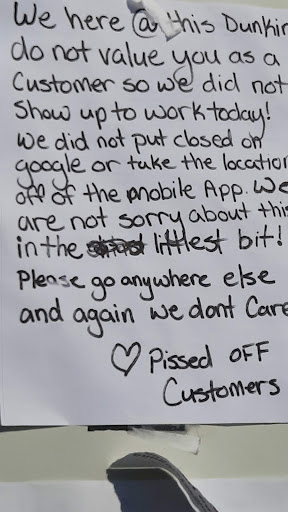 We here @ this Dunkin
do not value you as a
Customer so we did not
Show up to work today!
We did not put closed on
google or take the location
off of the mobile App. We
are not sorry about this
in the littlest bit!
Please go anywhere else
and again we dont Care
♡ Pissed OFF
Customers